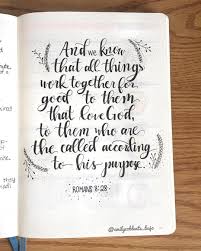 And we know
that all things
work together for
good to them
that love God,
to them who are
the called according
to his purpose.
ROMANS 8:28